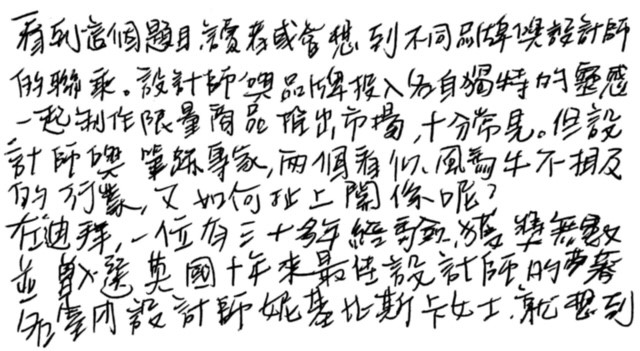 看到這個題目,讀者或會想到不同品牌與設計師
的聯乘。設計師與品牌投入各自獨特的靈感
一起制作限量商品推出市場,十分常見。但設
計師與筆跡專家,兩個看似風馬牛不相及
的行業,又如何扯上關係呢?
在迪拜,一位有三十多年經驗,獲獎無數
並曾入選英國十年來最佳設計師的著
名室內設計師妮基比斯卡女士,就想到